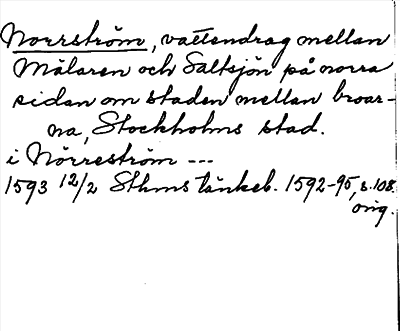 Norrström, vattendrag mellan
Mälaren och Saltsjön på norra
sidan om staden mellan broar-
na, Stockholms stad.
i Nörreström ---
1593 12/2 Sthms tänkeb. 1592-95, s. 108.
orig.